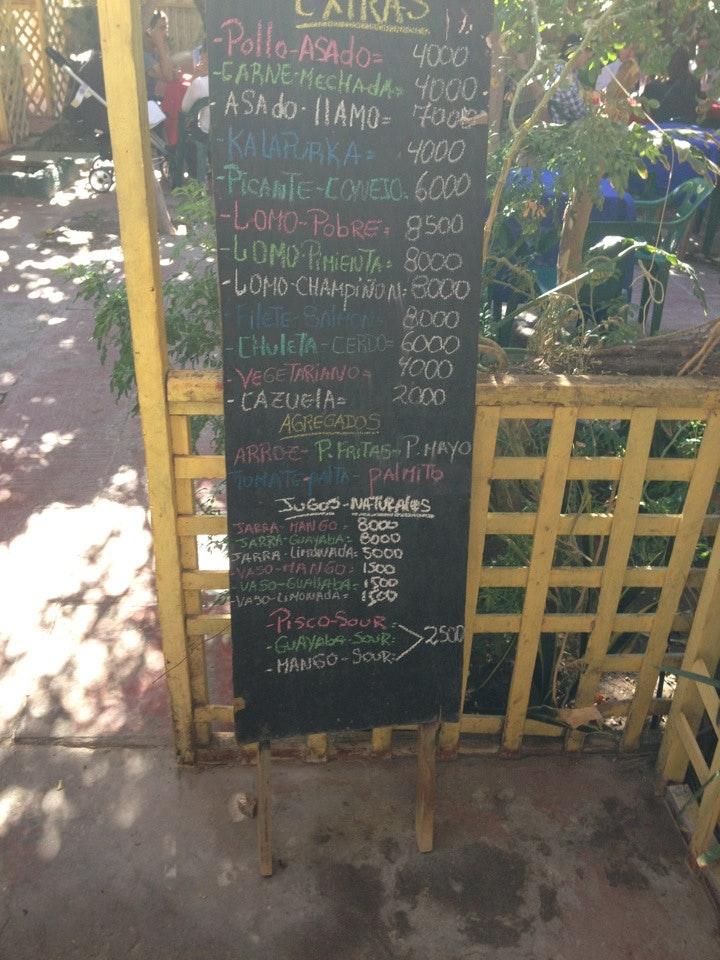 EXTRAS
-Pollo-ASADO= 4000
-CARNE-MECHADA= 4000
-ASADO-LLAMO= 7000
-KALAPURKA= 4000
-PICANTE-CONEJO. 6000
-LOMO-POBRE= 8500
-LOMO-PIMIENTA= 8000
-LOMO-CHAMPIÑON- 8000
-FILETE-SALMON= 8000
-CHULETA-CERDO= 6000
-VEGETARIANO= 4000
-CAZUELA= 2000
AGREGADOS
ARROZ- P.FRITAS- P.MAYO
TOMATE-PALTA- PALMITO
JUGOS-NATURALES
JARRA-MANGO= 8000
-JARRA-GUAYABA= 8000
JARRA-LIMONADA= 5000
-VASO-MANGO= 1500
-VASO-GUAYABA= 1500
-VASO-LIMONADA= 1500
-PISCO-SOUR-
-GUAYABA-SOUR- 2500
-MANGO-SOUR